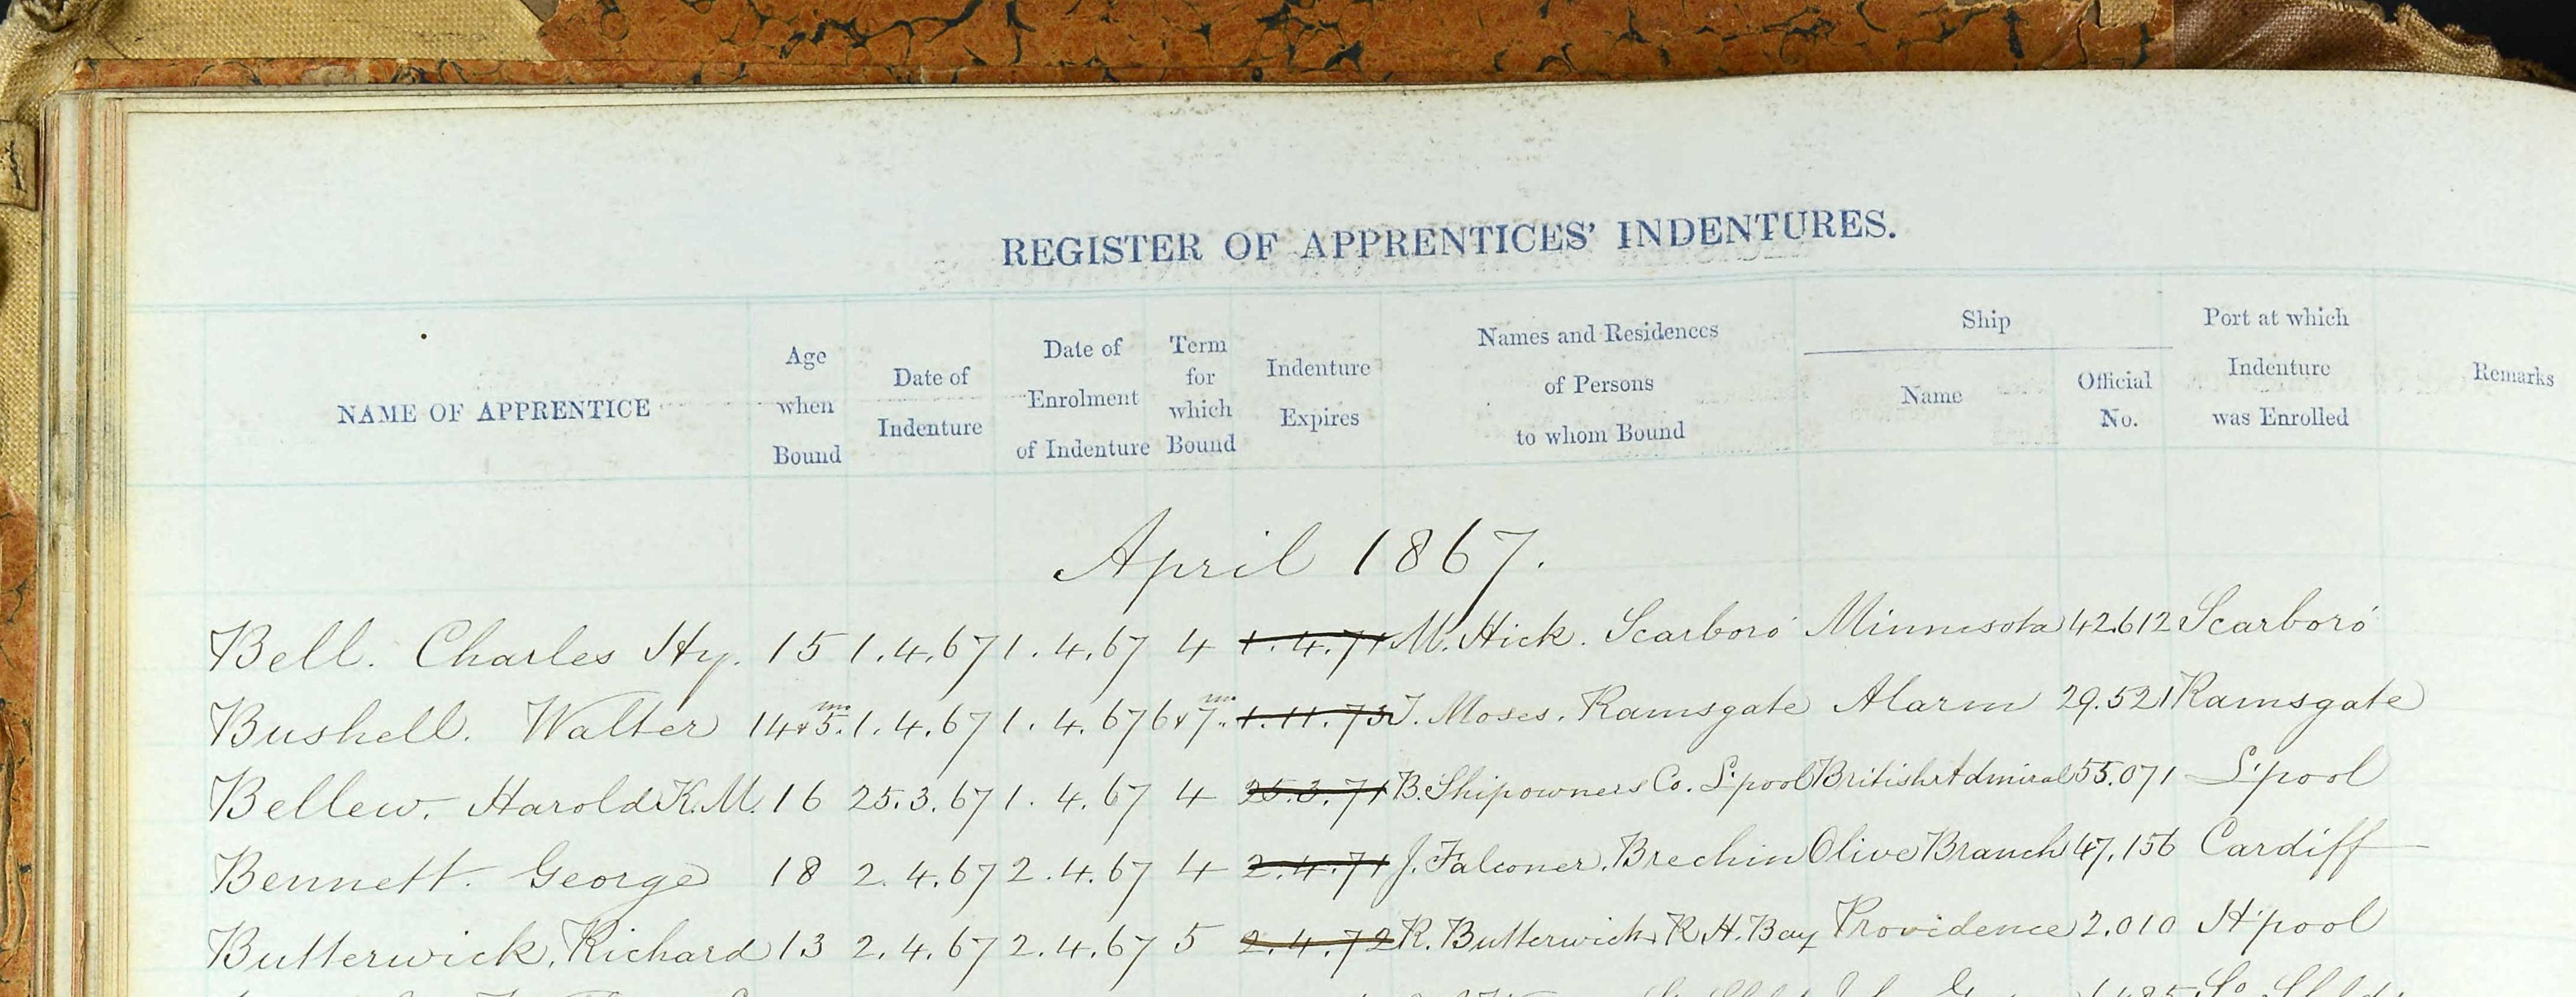 REGISTER OF APPRENTICES' INDENTURES.
NAME OF APPRENTICE
Age when Bound
Date of Indenture
Date of Enrolment of Indenture
Term for which Bound
Indenture Expires
Names and Residences of Persons to whom Bound
Ship
Name
Official No.
Port at which Indenture was Enrolled
Remarks
April 1867.
Bell. Charles Hy. 15 1.4.67 1.4.67 4 1.4.71 M. Hick. Scarboro' Minnesota 42612 Scarboro'
Bushell. Walter 14 & 5m. 1.4.67 1.4.67 6 & 7m. 1.11.73 J. Moses. Ramsgate Alarm 29.521 Ramsgate
Bellew. Harold K.M. 16 25.3.67 1.4.67 4 25.3.71 B. Shipowners Co. L'pool British Admiral 55.071 L'pool
Bennett. George 18 2.4.67 2.4.67 4 2.4.71 J. Falconer. Brechin Olive Branch 47,156 Cardiff
Butterwick, Richard 13 2.4.67 2.4.67 5 2.4.72 R. Butterwick, R.H. Bay Providence 2,010 H'pool